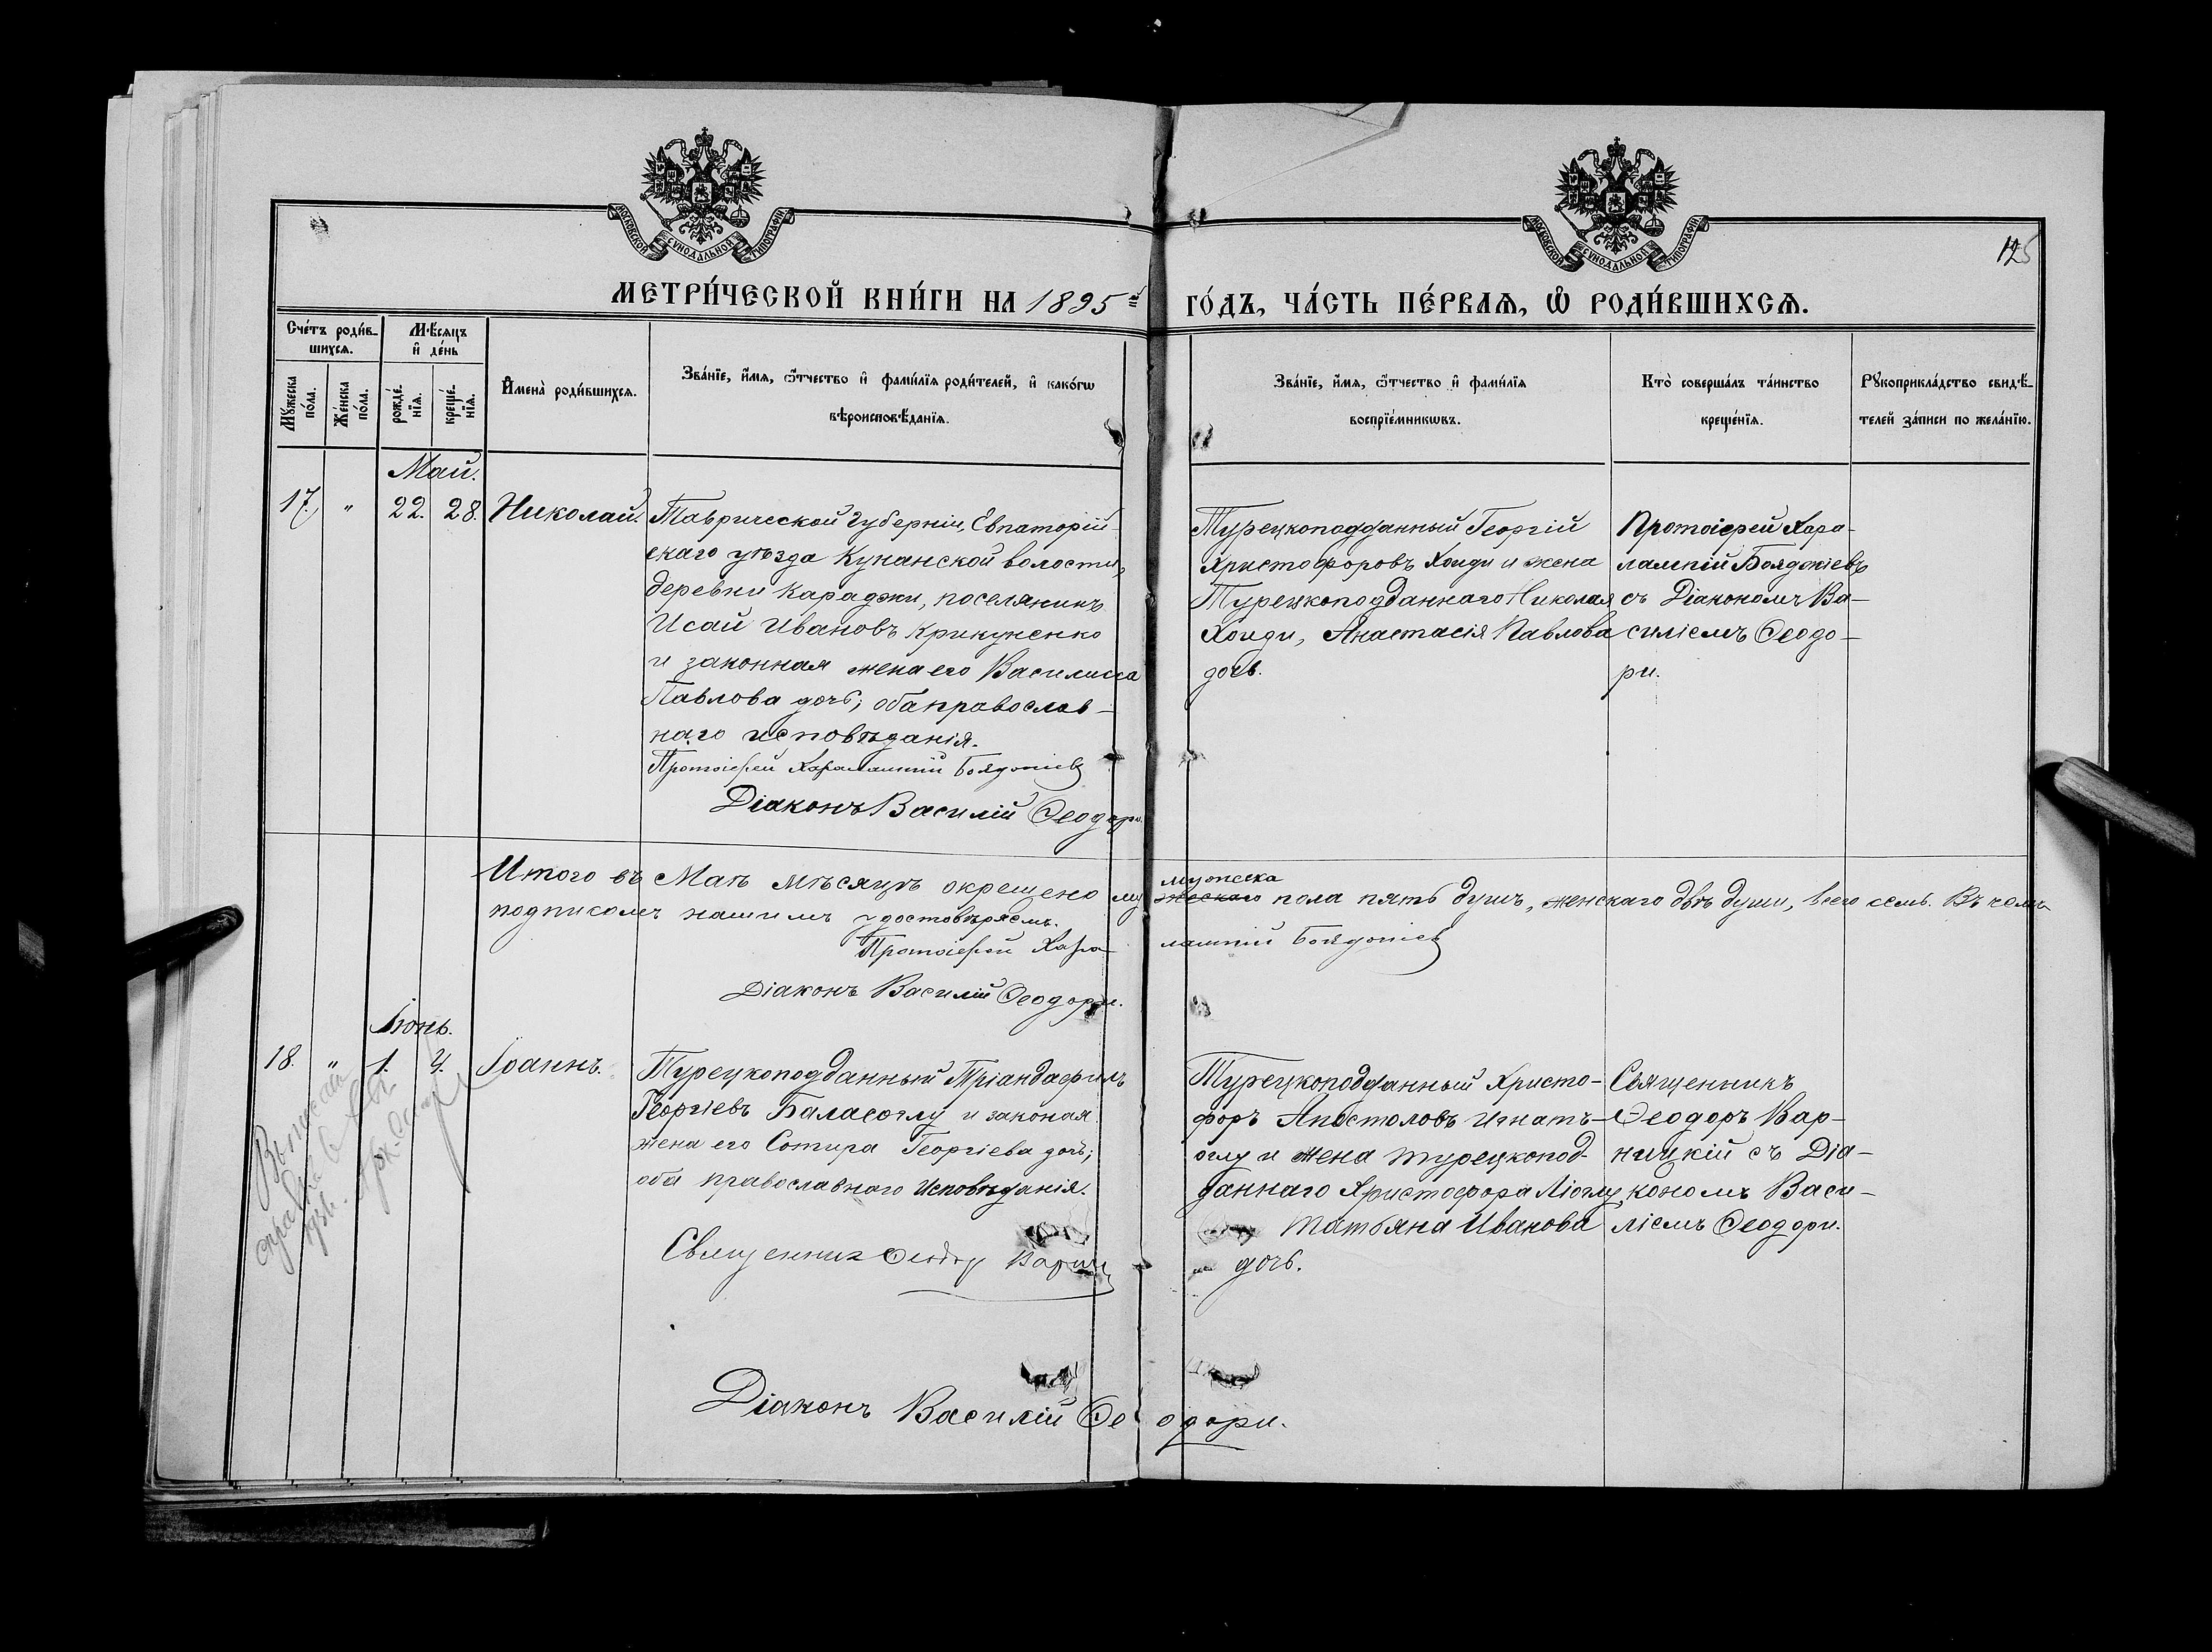 МОСКОВСКОЙ СѴНОДАЛЬНОЙ ТИПОГРАФІИ
МОСКОВСКОЙ СѴНОДАЛЬНОЙ ТИПОГРАФІИ
125
МЕТРИ́ЧЕСКОЙ КНИ́ГИ НА 1895 й ГО́ДЪ, ЧА́СТЬ ПЕ́РВАѦ, Ѡ҆ РОДИ́ВШИХСѦ.
Сче́тъ роди́в-
шихсѧ.
Мѣ́сѧцъ
и҆ де́нь
Мꙋ́жеска
по́ла.
Же́нска
по́ла.
рожде́-
нїѧ.
креще́-
нїѧ.
И҆мена̀ роди́вшихсѧ.
Зва́нїе, и҆́мѧ, ѻ҆́тчество и҆ фами́лїѧ роди́телей, и҆ како́гѡ
вѣроисповѣ́данїѧ.
Зва́нїе, и҆́мѧ, ѻ҆́тчество и҆ фами́лїѧ
воспрїе́мникѡвъ.
Кто̀ соверша́лъ та́инство
креще́нїѧ.
Рꙋкоприкла́дство свидѣ́-
телей за́писи по жела́нїю.
Май.
17. " 22. 28. Николай.
Таврической Губерніи, Евпаторій-
скаго уѣзда Кунанской волости,
деревни Караджи, поселянинъ
Исай Ивановъ Крикуненко
и законная жена его Василисса
Павлова дочь; оба православ-
наго исповѣданія.
Протоіерей Харалампій Бояджіевъ
Діаконъ Василій Ѳеодори.
Турецкоподданный Георгій
Христофоровъ Хоиди и жена
Турецкоподданнаго Николая
Хоиди, Анастасія Павлова
дочь.
Протоіерей Хара-
лампій Бояджіевъ
съ Діакономъ Ва-
силіемъ Ѳеодо-
ри.
Итого въ Маѣ мѣсяцѣ окрещено му жескаго мужеска пола пять душъ, женскаго двѣ души, всего семь. Въ чемъ
подписомъ нашимъ удостовѣряемъ.
Протоіерей Харалампій Бояджіевъ
Діаконъ Василій Ѳеодори.
Іюнь.
18. " 1. 4. Іоаннъ.
Турецкоподданный Тріандафилъ
Георгіевъ Баласоглу и законая
жена его Сотира Георгіева дочь;
оба православнаго Исповѣданія.
Священникъ Ѳеодоръ
Діаконъ Василій Ѳеодори.
Турецкоподданный Христо-
форъ Апостоловъ Игнатъ-
оглу и жена турецкопод-
даннаго Христофора Ліоглу,
Татьяна Иванова
дочь.
Священникъ
Ѳеодоръ Вар-
ницкій съ Діа-
кономъ Васи-
ліемъ Ѳеодори.